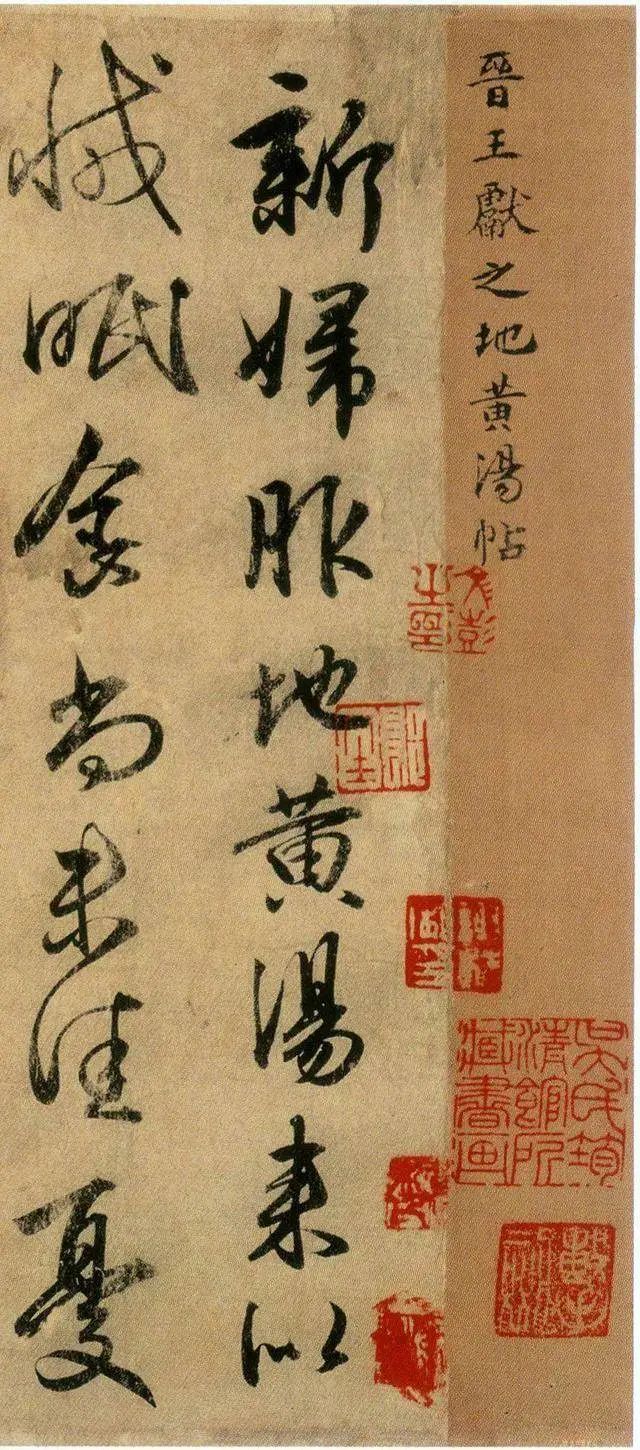 晉王獻之地黄湯帖
新婦服地黄湯来似
減眠食尚未佳憂
吳氏筠
清館所
藏書画